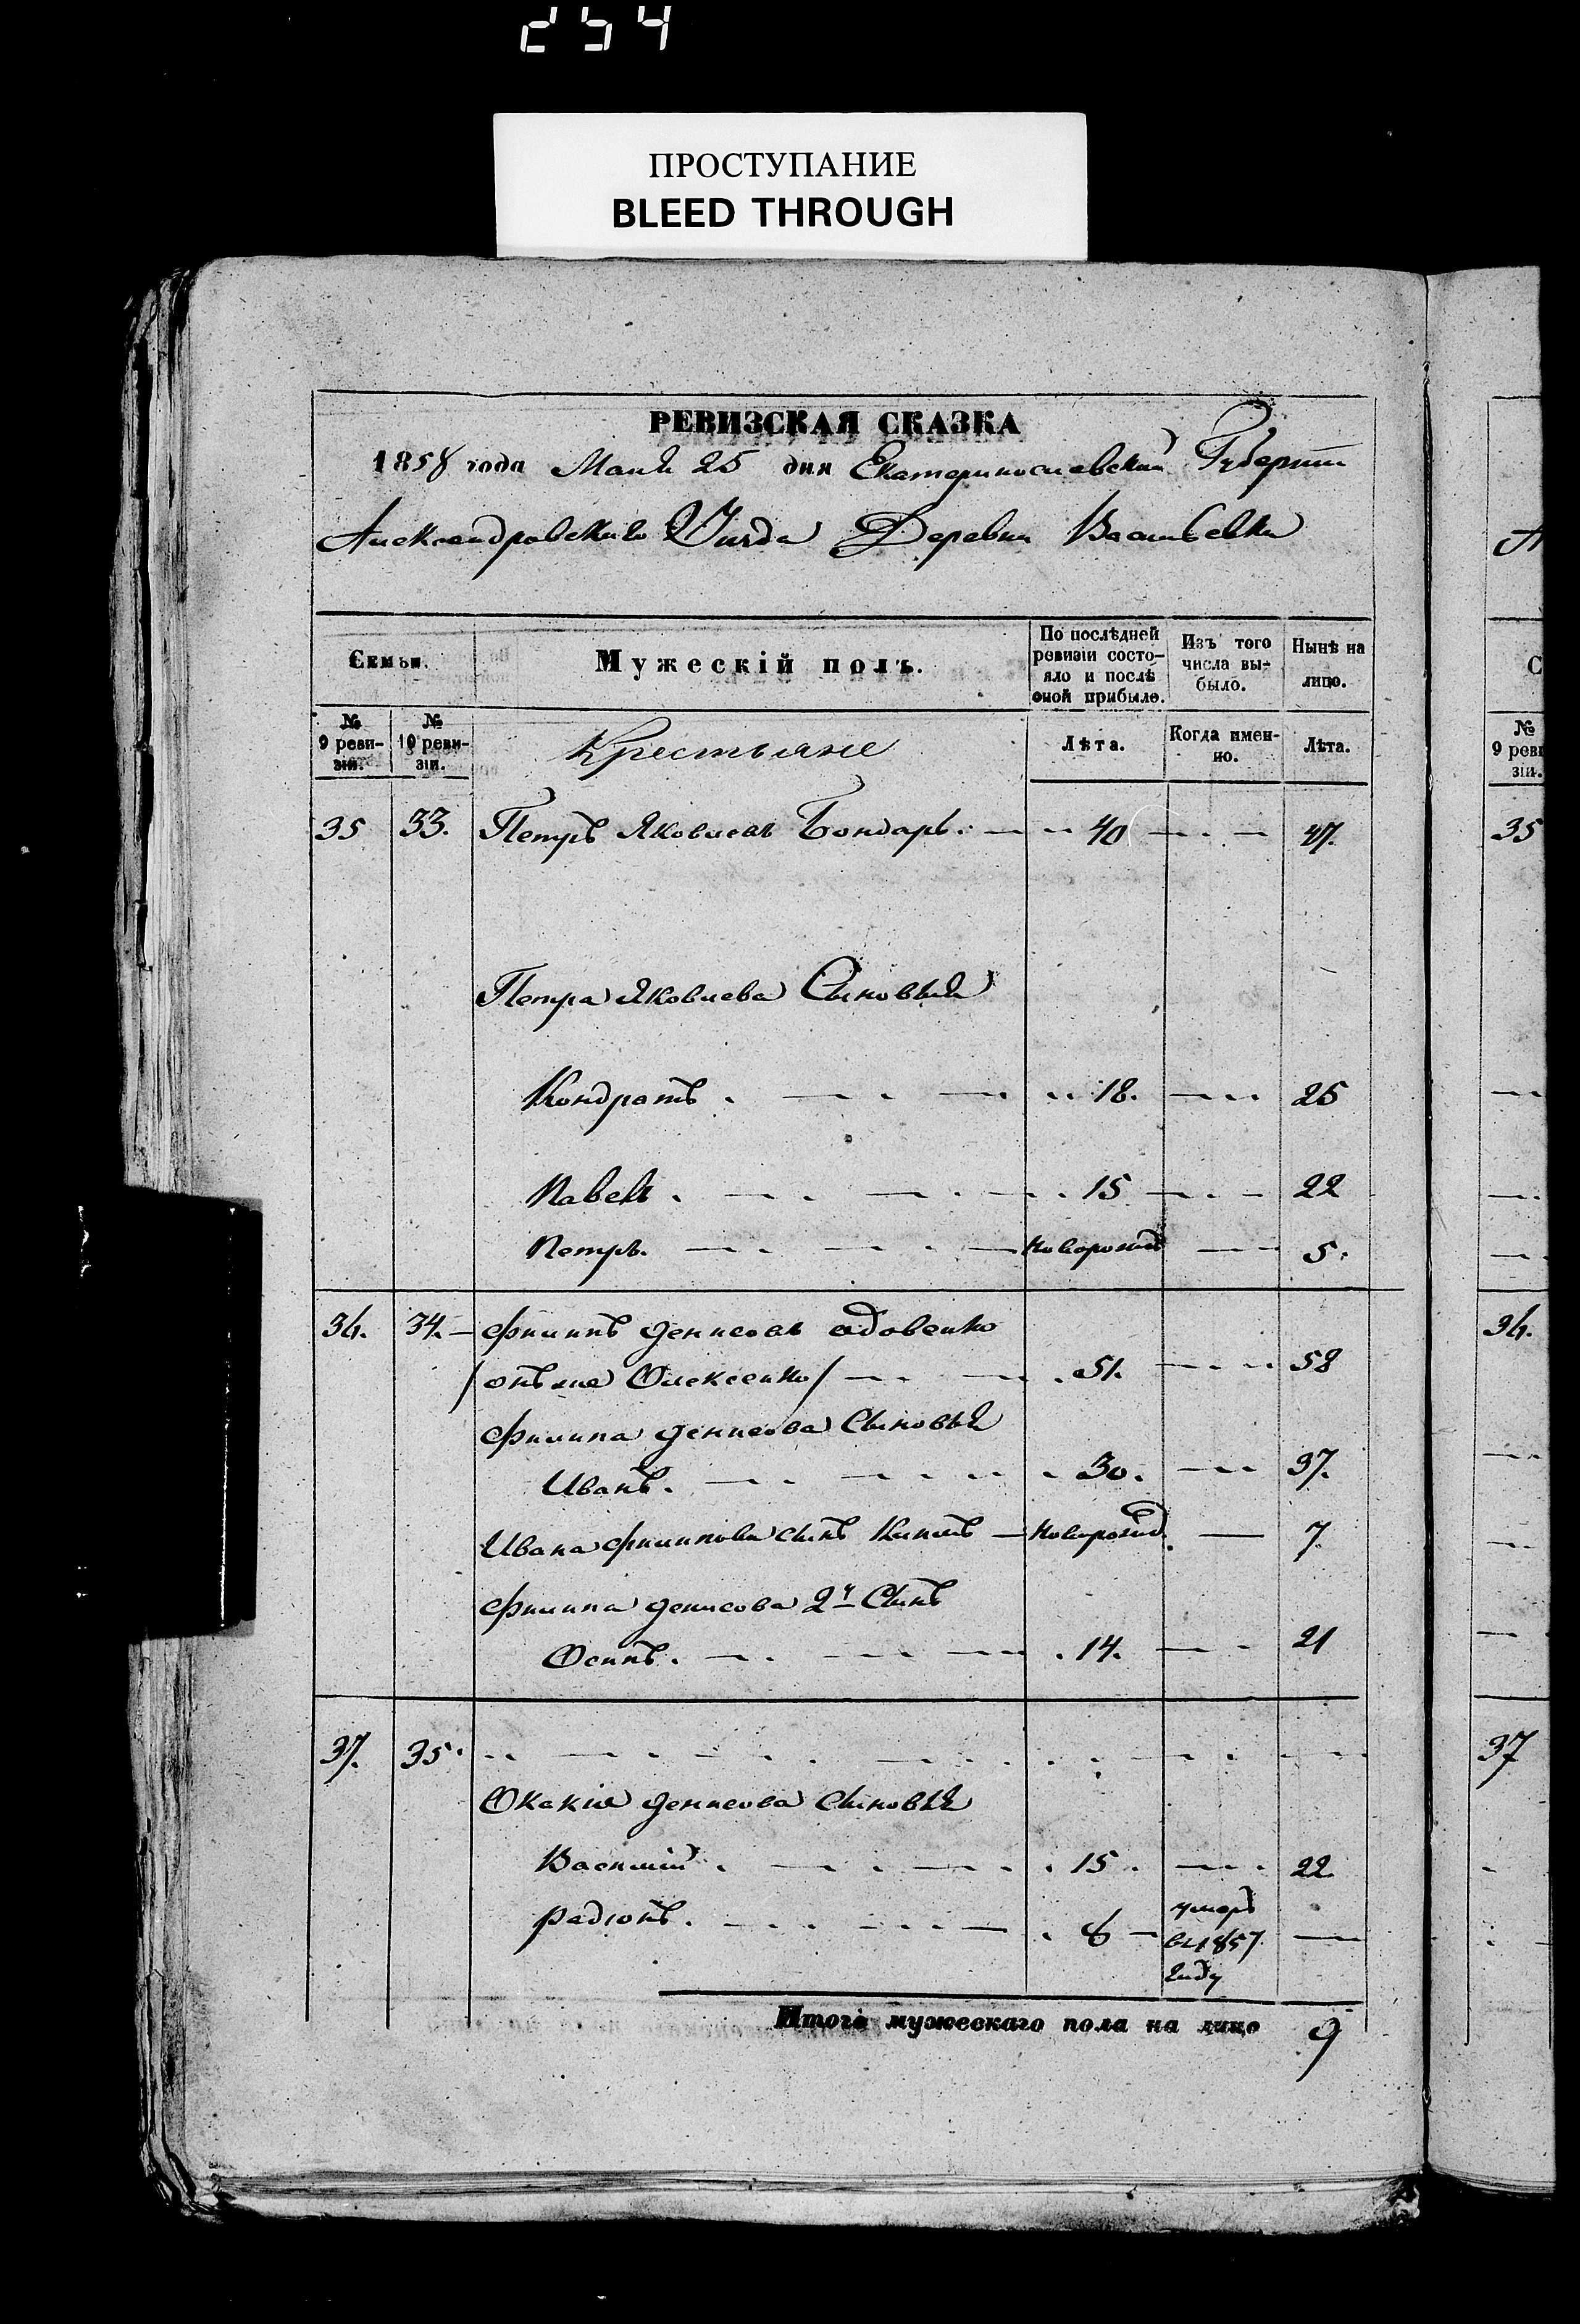 254
ПРОСТУПАНИЕ
BLEED THROUGH
РЕВИЗСКАЯ СКАЗКА
1858 года Маія 25 дня Екатеринославской Губерніи
Александровскаго Уѣзда Деревни Васильевки
Семьи.
Мужескій полъ.
По послѣдней ревизіи состояло и послѣ оной прибыло.
Изъ того числа выбыло.
Нынѣ на лицо.
№ 9 ревизіи.
№ 10 ревизіи.
Крестьяне
Лѣта.
Когда именно.
Лѣта.
35 33. Петръ Яковлевъ Бондарь. 40 47.
Петра Яковлева Сыновья
Кондратъ. 18. 25
Павелъ. 15 22
Петръ. новорожд 5.
36. 34. Филипъ Денисовъ
/онъ же Олексенко/ 51. 58
Филипа Денисова Сыновья
Иванъ. 30. 37.
Ивана Филипова сынъ новорожд. 7
Филипа Денисова 2й Сынъ
Осипъ. 14. 21
37. 35.
Окакія Денисова сыновья
Василій. 15. 22
Радіонъ. 8
умеръ
въ 1857
году
Итого мужескаго пола на лицо 9
А
С
№
9 реви
зіи.
35
36.
37